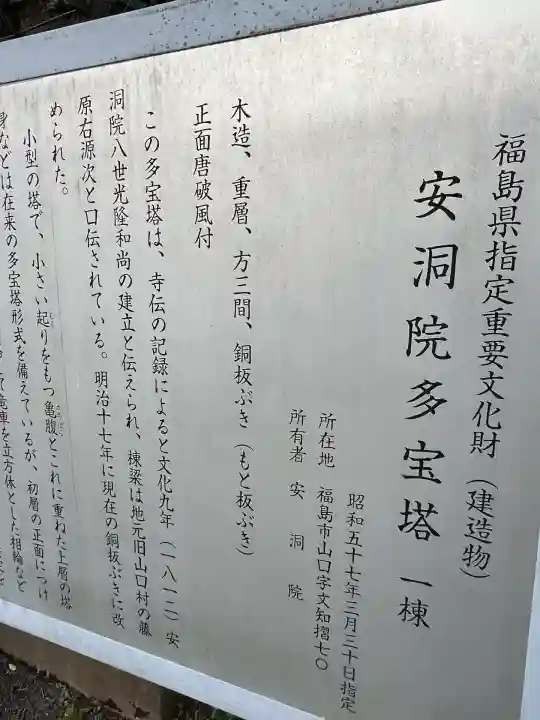 福島県指定重要文化財（建造物）
安洞院多宝塔 一棟
昭和五十七年三月三十日指定
所在地 福島市山口字文知摺七〇
所有者 安洞院
木造、重層、方三間、銅板ぶき（もと板ぶき）
正面唐破風付
この多宝塔は、寺伝の記録によると文化九年（一八一二）安
洞院八世光隆和尚の建立と伝えられ、棟梁は地元旧山口村の藤
原右源次と口伝されている。明治十七年に現在の銅板ぶきに改
められた。
小型の塔で、小さい起りをもつ亀腹とこれに重ねた上層の塔
身などは在来の多宝塔形式を備えているが、初層の正面につけ
竜車を立方体とした相輪など